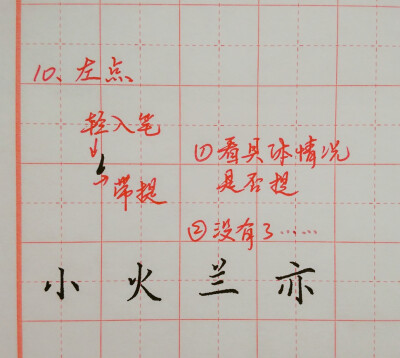 10、左点
轻入笔
带提
①看具体情况
是否提
②没有了……
小 火 兰 亦